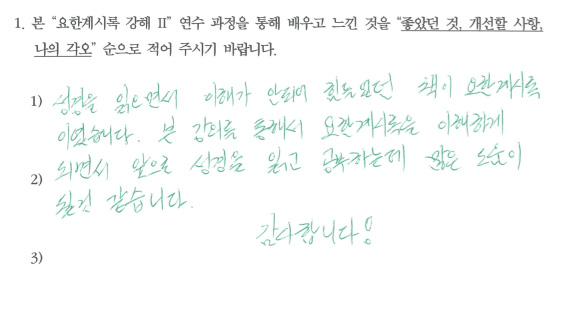 1. 본 “요한계시록 강해 II” 연수 과정을 통해 배우고 느낀 것을 “좋았던 것, 개선할 사항,
나의 각오” 순으로 적어 주시기 바랍니다.
1) 성경을 읽으면서 이해가 안되어 힘들었던 책이 요한계시록
이었습니다. 본 강의를 통해서 요한계시록을 이해하게
2) 되면서 앞으로 성경을 읽고 공부하는데 많은 도움이
될것 같습니다.
감사합니다!
3)